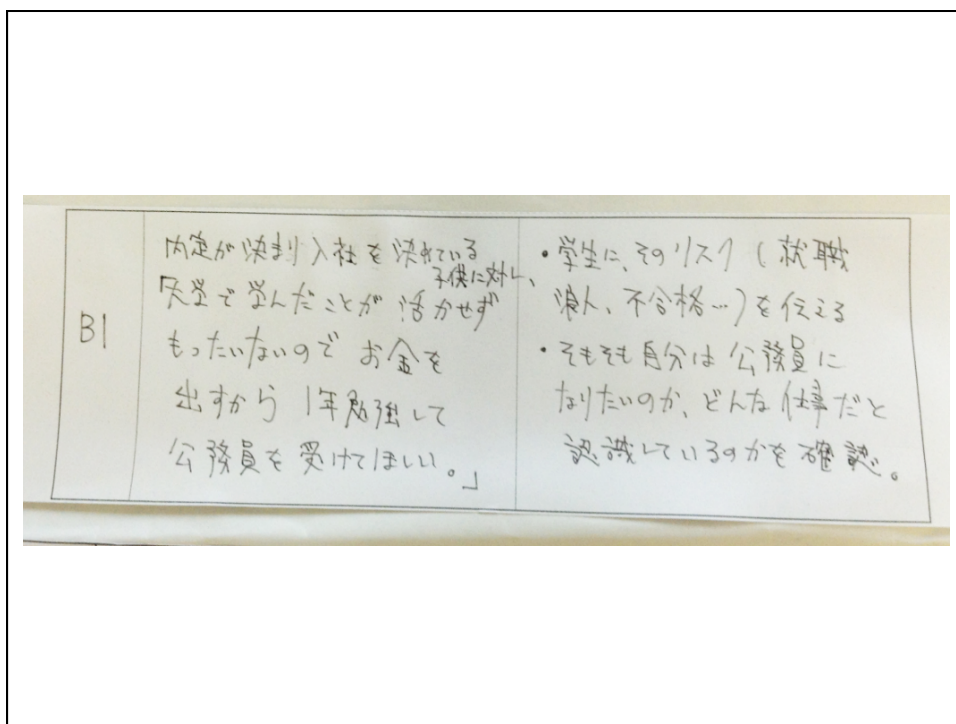 B1
内定が決まり入社を決めている
子供に対し、
「大学で学んだことが活かせず
もったいないので お金を
出すから 1年勉強して
公務員を受けてほしい。」
・学生に、そのリスク(就職
浪人、不合格…)を伝える
・そもそも自分は公務員に
なりたいのか、どんな仕事だと
認識しているのかを確認。